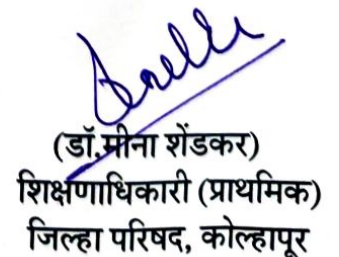 (डॉ.मीना शेंडकर)
शिक्षणाधिकारी (प्राथमिक)
जिल्हा परिषद, कोल्हापूर